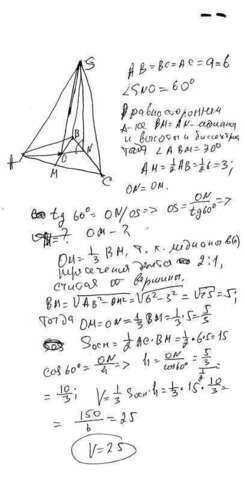 S
A
B
O
N
M
C
AB=BC=AC=a=6
∠SNO=60°
В равностороннем
Δ-ке BM=AN-медиана
и высота и биссектриса
тогда ∠ABM=30°
AM=½AB=½6=3;
ON=OM.
tg 60°=ON/OS=> OS=ON/tg60°=>
? OM-?
OM=⅓BM, т.к. медианы в (·)
пересечения 2:1,
считая от вершины.
BM=√AB²-AM²=√6²-3²=√25=5;
Тогда OM=ON=⅓BM=⅓·5=5/3
Sосн=½AC·BM=½·6·5=15
cos60°=ON/h => h=ON/cos60°=5/3/½
=10/3; V=⅓Sосн·h=⅓·15·10/3=
=150/6=25
V=25